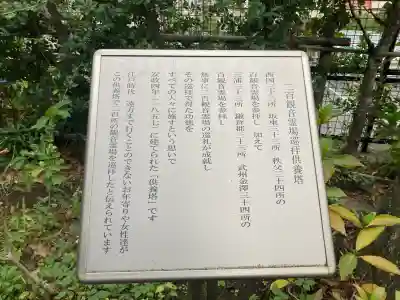 二百観音霊場巡拝供養塔
西国三十三所 坂東三十三所 秩父三十四所の
百観音霊場を参拝し 加えて
三浦三十三所 鎌倉郡三十三所 武州金澤三十四所の
百観音霊場を参拝し
無事に二百観音霊場の巡礼が成就し
その巡拝で得た功徳を
すべての人々に施すという思いで
安政四年(一八五七)に建てられた「供養塔」です
江戸時代 遠方まで行くことのできないお年寄りや女性達が
この供養塔で二百所の観音霊場を遥拝したと伝えられています